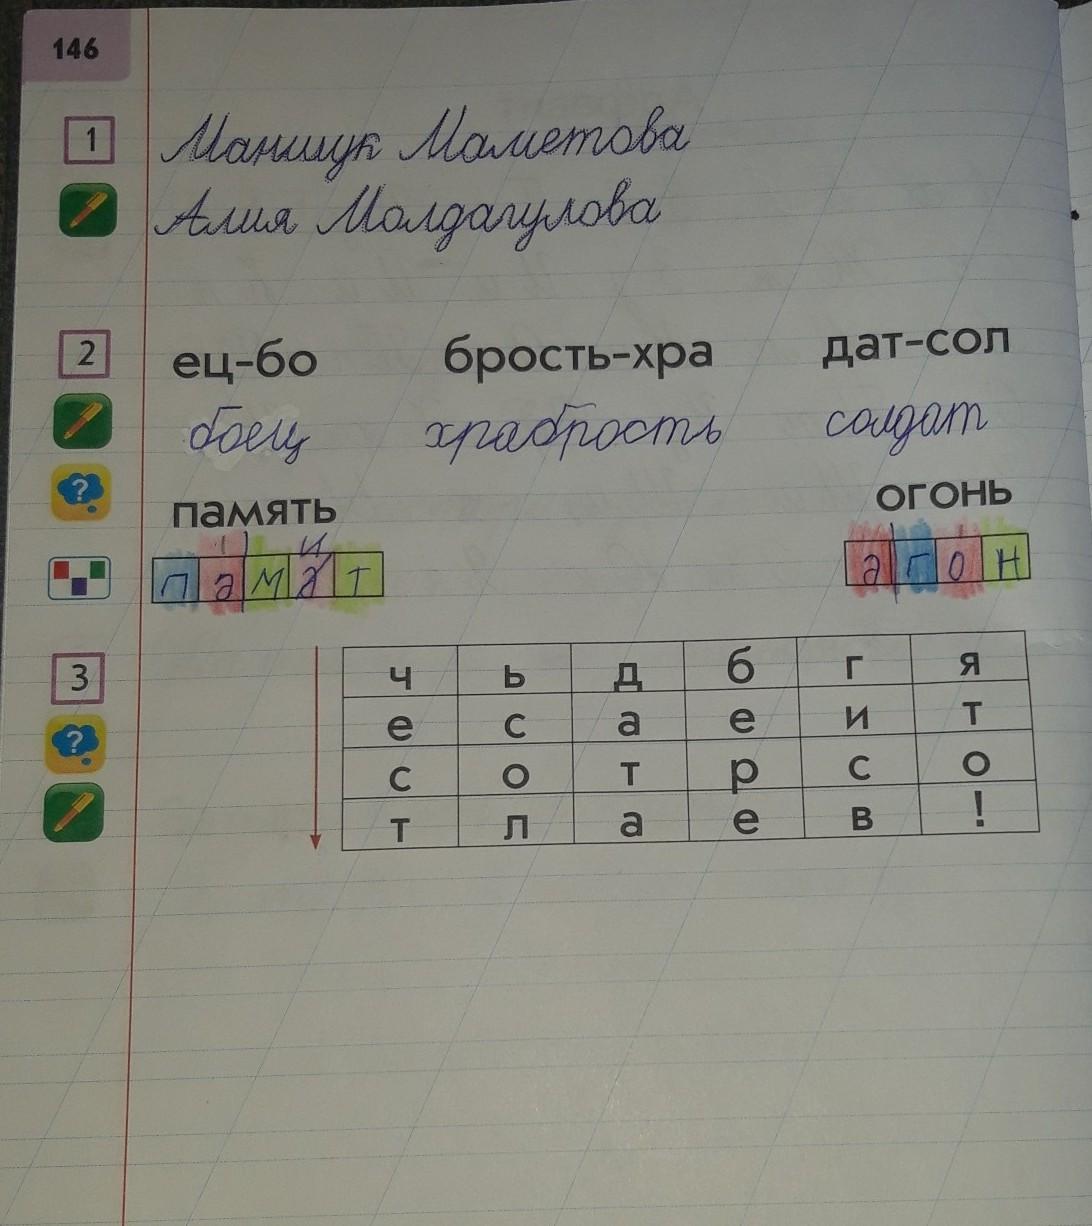 146
1 Маншук Маметова
Алия Молдагулова
2 ец-бо брость-хра дат-сол
боец храбрость солдат
память огонь
и
п а м а т а г о н
3
ч ь д б г я
е с а е и т
с о т р с о
т л а е в !